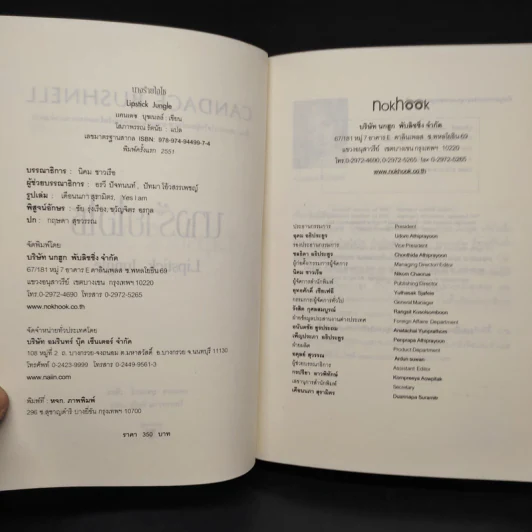 นางร้ายไฮโซ
Lipstick Jungle
แคนเดซ บุชเนลล์ : เขียน
โสภาพรรณ รัตนัย : แปล
เลขมาตรฐานสากล ISBN: 978-974-94499-7-4
พิมพ์ครั้งแรก 2551
บรรณาธิการ : นิคม ชาวเรือ
ผู้ช่วยบรรณาธิการ : อรวี ปัจทนนท์, ปัทมา โอ้วสรรเพชญ์
รูปเล่ม : เตือนนภา สุรามิตร, Yes I am
พิสูจน์อักษร : ชัย รุ่งเรือง, ขวัญจิตร
ปก : กฤษดา สุขวรรณ
จัดพิมพ์โดย
บริษัท นกฮูก พับลิชชิ่ง จำกัด
67/181 หมู่ 7 อาคาร E คาลินเพลส ซ.พหลโยธิน 69
แขวงอนุสาวรีย์ เขตบางเขน กรุงเทพฯ 10220
โทร.0-2972-4690 โทรสาร 0-2972-5265
www.nokhook.co.th
จัดจำหน่ายทั่วประเทศโดย
บริษัท อมรินทร์ บุ๊ค เซ็นเตอร์ จำกัด
108 หมู่ที่ 2 ถ. บางกรวย-จงถนอม ต.มหาสวัสดิ์ อ.บางกรวย จ.นนทบุรี 11130
โทรศัพท์ 0-2423-9999 โทรสาร 0-2449-9561-3
www.naiin.com
พิมพ์ที่ : หจก. ภาพพิมพ์
296 ซ.อรุณอมรินทร์ 30 บางยี่ขัน กรุงเทพฯ 10700
ราคา 350 บาท
nokhook
บริษัท นกฮูก พับลิชชิ่ง จำกัด
67/181 หมู่ 7 อาคาร E คาลินเพลส ซ.พหลโยธิน 69
แขวงอนุสาวรีย์ เขตบางเขน กรุงเทพฯ 10220
โทร.0-2972-4690, 0-2972-5265, fax 0-2972-5265
www.nokhook.co.th
ประธานกรรมการ President
อุดม อธิประยูร Udom Athiprayoon
รองประธานกรรมการ Vice President
ชลธิดา อธิประยูร Chonthida Athiprayoon
ผู้ก่อตั้งกรรมการผู้จัดการ Managing Director Editor
นิคม ชาวเรือ Nikom Chawrua
ผู้จัดการสำนักพิมพ์ Publishing Director
ยุทธศักดิ์ Yuthasak
กรรมการผู้จัดการทั่วไป General Manager
รังสิต กุศลสมบูรณ์ Rangsit Kusolsomboon
ฝ่ายข้อมูลประสานงานต่างประเทศ Foreign Affaire Department
Anatachai Yunpathom
เพ็ญประภา อธิประยูร Penprapa Athiprayoon
ฝ่ายผลิต Product Department
Ardun suwan
ผู้ช่วยบรรณาธิการ Assistant Editor
Kornpreeya Aowpitak
เลขานุการสำนักพิมพ์ Secretary
เตือนนภา สุรามิตร Duannapa Suramitr